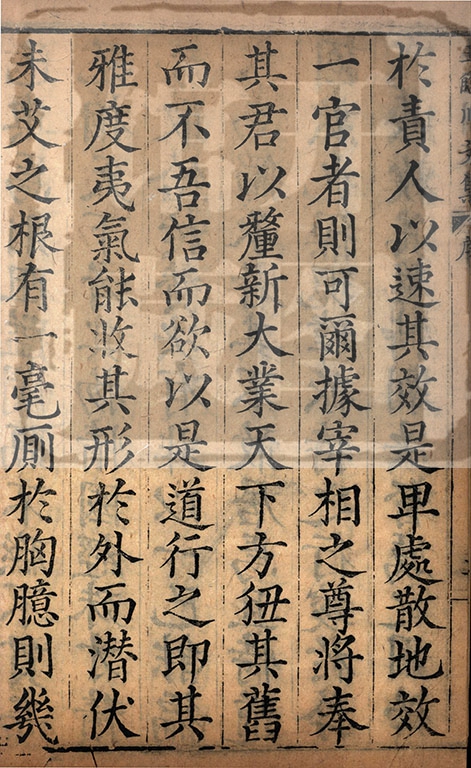 於責人以速其效是甲處散地效
一官者則可爾據宰相之尊將奉
其君以釐新大業天下方狃其舊
而不吾信而欲以是道行之即其
雅度夷氣能𭣣其形於外而潜伏
未艾之根有一毫厠於胸臆則幾